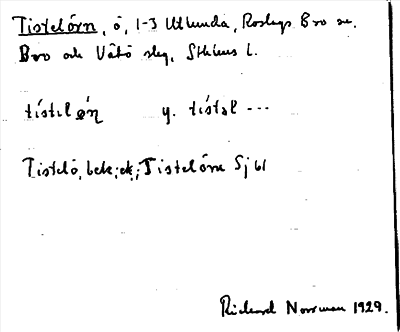 Tistelörn, ö, 1-3 Utlunda, Roslags Bro sn.
Bro och Vätö slg, Sthlms l.
tístɩløṇ y. tístəl ---
Tistelö, bek; ek; Tistelörn Sj 61
Rickard Norrman 1929.